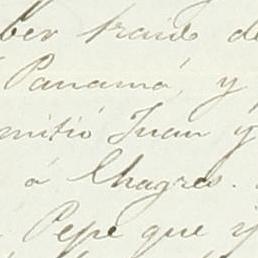 ber traido de
Panamá, y
mitió Juan y
á Chagres.
Pepe que y